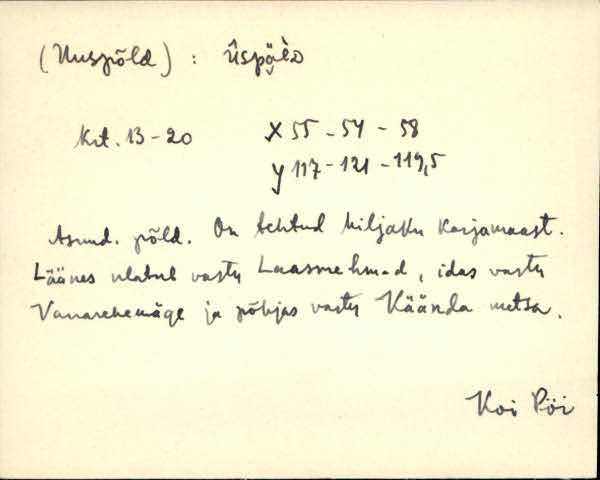 (Uuspõld) :
krt. 13-20 X 55 - 54 - 58
y 117 - 121 - 119,5
Asund. põld. On tehtud hiljaku karjamaast.
Läänes ulatub vastu, idas vastu
Vanarehemäge ja põhjas vastu Käända metsa.
Koi Pöi